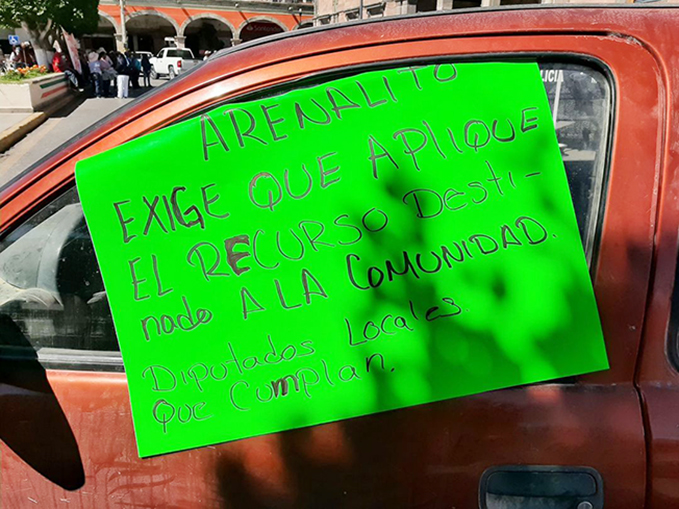 ARENALITO
EXIGE QUE APLIQUE
EL RECURSO DESTI-
nado A LA COMUNIDAD.
Diputados Locales
Que Cumplan.